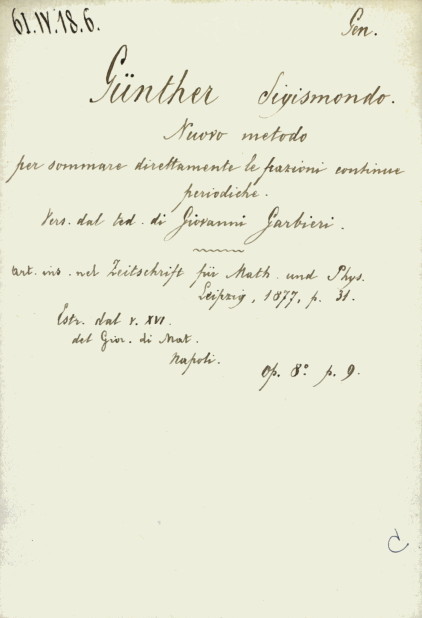 61.IV.18.6.
Gen.
Günther Sigismondo.
Nuovo metodo
per sommare direttamente le frazioni continue
periodiche.
Vers. dal ted. di Giovanni Garbieri.
art. ins. nel Zeitschrift für Math. und Phys.
Leipzig, 1877, p. 31.
Estr. dal v. XVI.
del Gior. di Mat.
Napoli.
op. 8° p. 9.
C